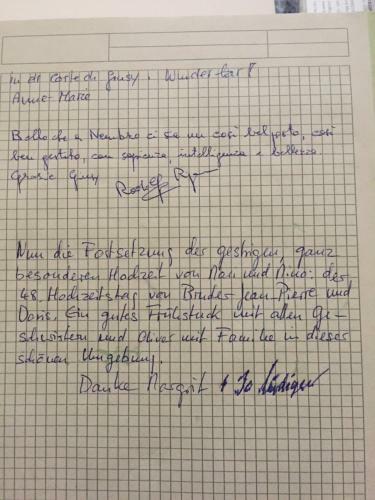 in de Corte di Giusy. Wunderbar!
Anne-Marie
Bello che a Nembro ci sia un così bel posto, così
ben gestito, con sapienza, intelligenza e bellezza.
Grazie Giusy
Nun die Fortsetzung der gestrigen, ganz
besonderen Hochzeit von und Nino: der
48. Hochzeitstag von Bruder Jean Pierre und
Doris. Ein gutes Frühstück mit allen Ge-
schwistern und Oliver mit Familie in dieser
schönen Umgebung.
Danke Margrit + Jo